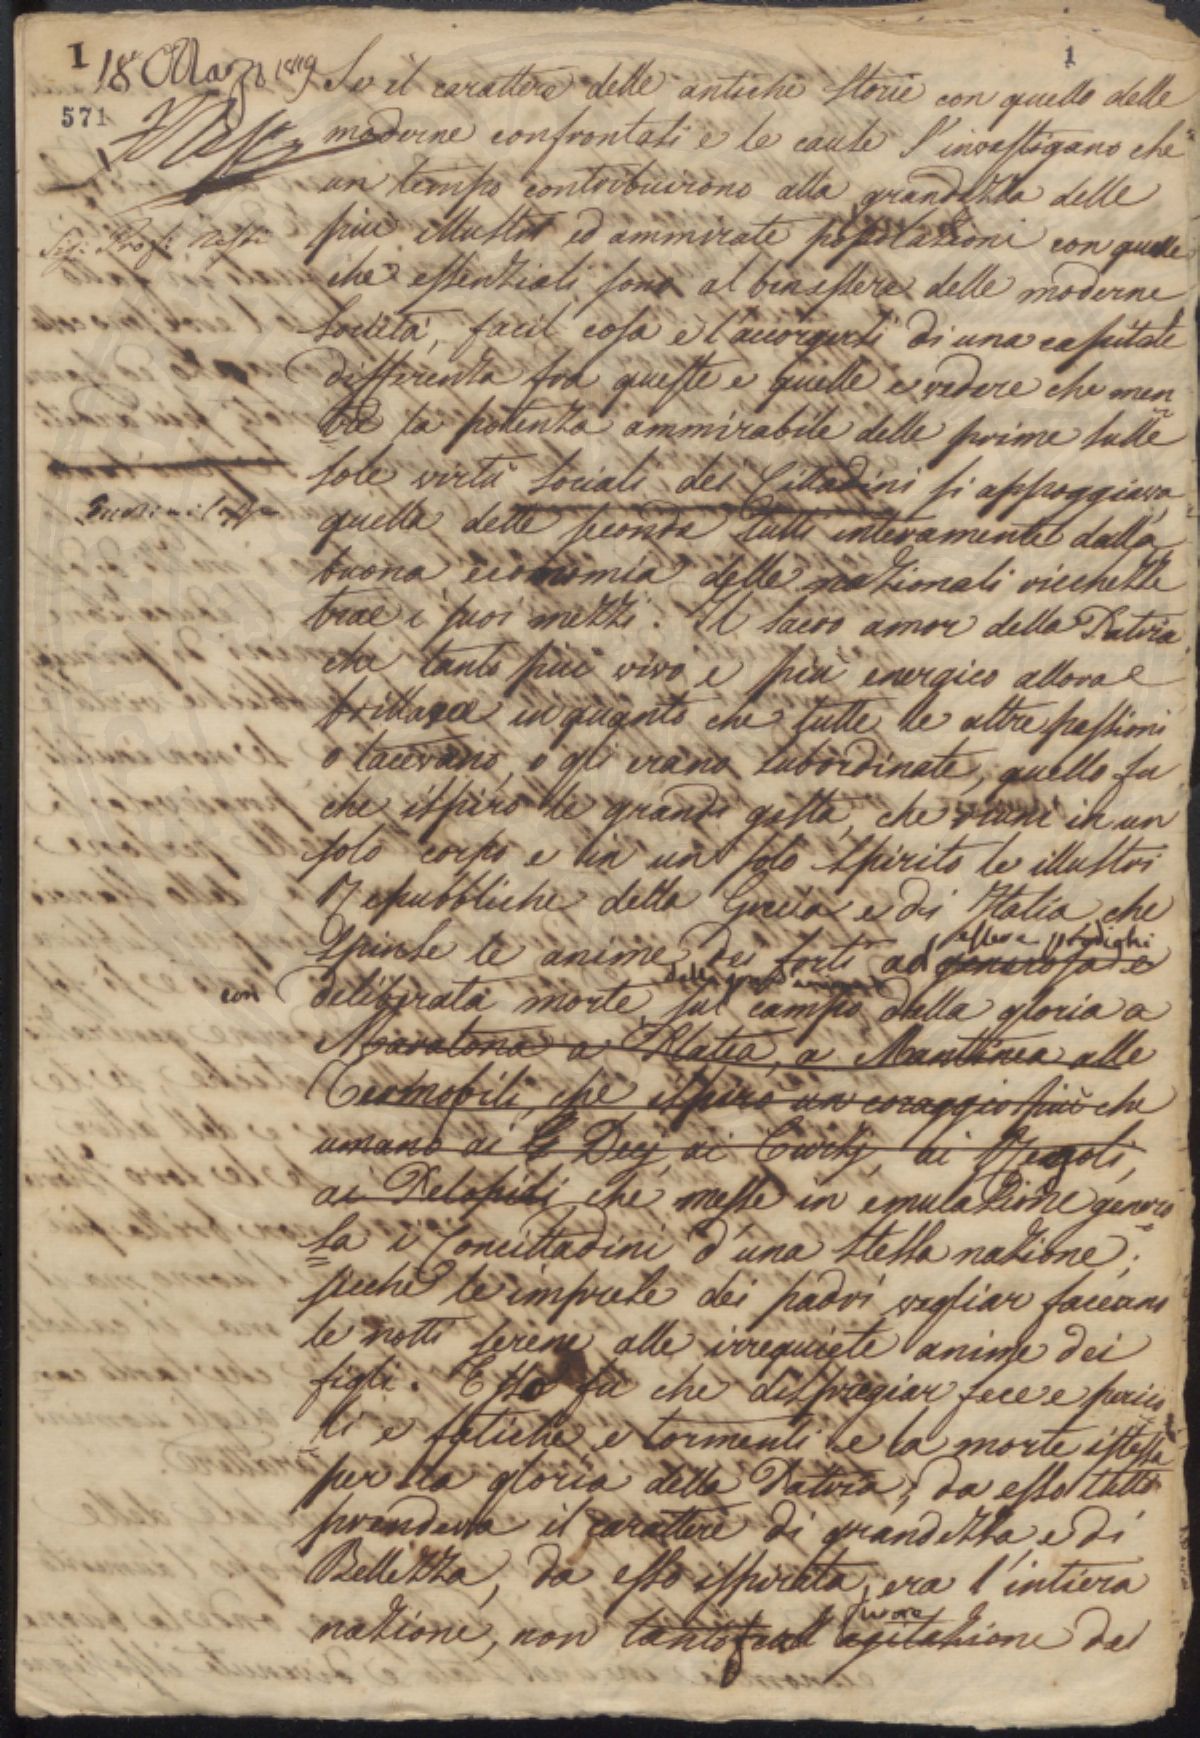 1
1
18 Marzo 1819
571
Sig: Prof: Nesti
Se il carattere delle antiche storie con quello delle
moderne confrontasi e le cause s'investigano che
un tempo contribuirono alla grandezza delle
più illustri ed ammirate popolazioni con quelle
che essenziali sono al benessere delle moderne
società, facil cosa è l'accorgersi di una capitale
differenza fra queste e quelle e vedere che men
tre la potenza ammirabile delle prime sulle
sole virtù sociali dei Cittadini si appoggiava,
quella delle seconde tutti interamente dalla
buona economia delle nazionali ricchezze
trae i suoi mezzi. Il sacro amor della Patria
che tanto più vivo e più energico allora
brillava in quanto che tutte le altre passioni
o tacevano, o gli erano subordinate, quello fu
che ispirò le grandi gesta, che riunì in un
solo corpo e in un solo spirito le illustri
Repubbliche della Grecia e di Italia che
essere prodighi
spinse le anime dei forti ad generosa e
con
deliberata morte, sul campo della gloria a
Maratona a Platea, a Mantinea alle
Termopili, che ispirò un coraggio più che
umano ai Decj, ai Curzj, ai Regoli,
ai Pelopidi che messe in emulazione genero
sa i Concittadini d'una stessa nazione;
sicchè le imprese dei padri vegliar faceano
le notti serene alle irrequiete anime dei
figli. Esso fu che dispregiar fece e perico
li e fatiche e tormenti e la morte istessa
per la gloria della Patria; da esso tutto
prendeva il carattere di grandezza e di
Bellezza, da esso ispirata, era l'intiera
nazione, non tanto agitazione da